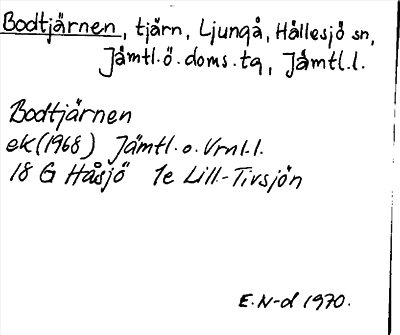 Bodtjärnen, tjärn, Ljungå, Hållesjö sn,
Jämtl. ö. doms. tg, Jämtl. l.
Bodtjärnen
ek (1968) Jämtl. o. Vrnl. l.
18 G Håsjö 1e Lill-Tivsjön
E. N-d 1970.